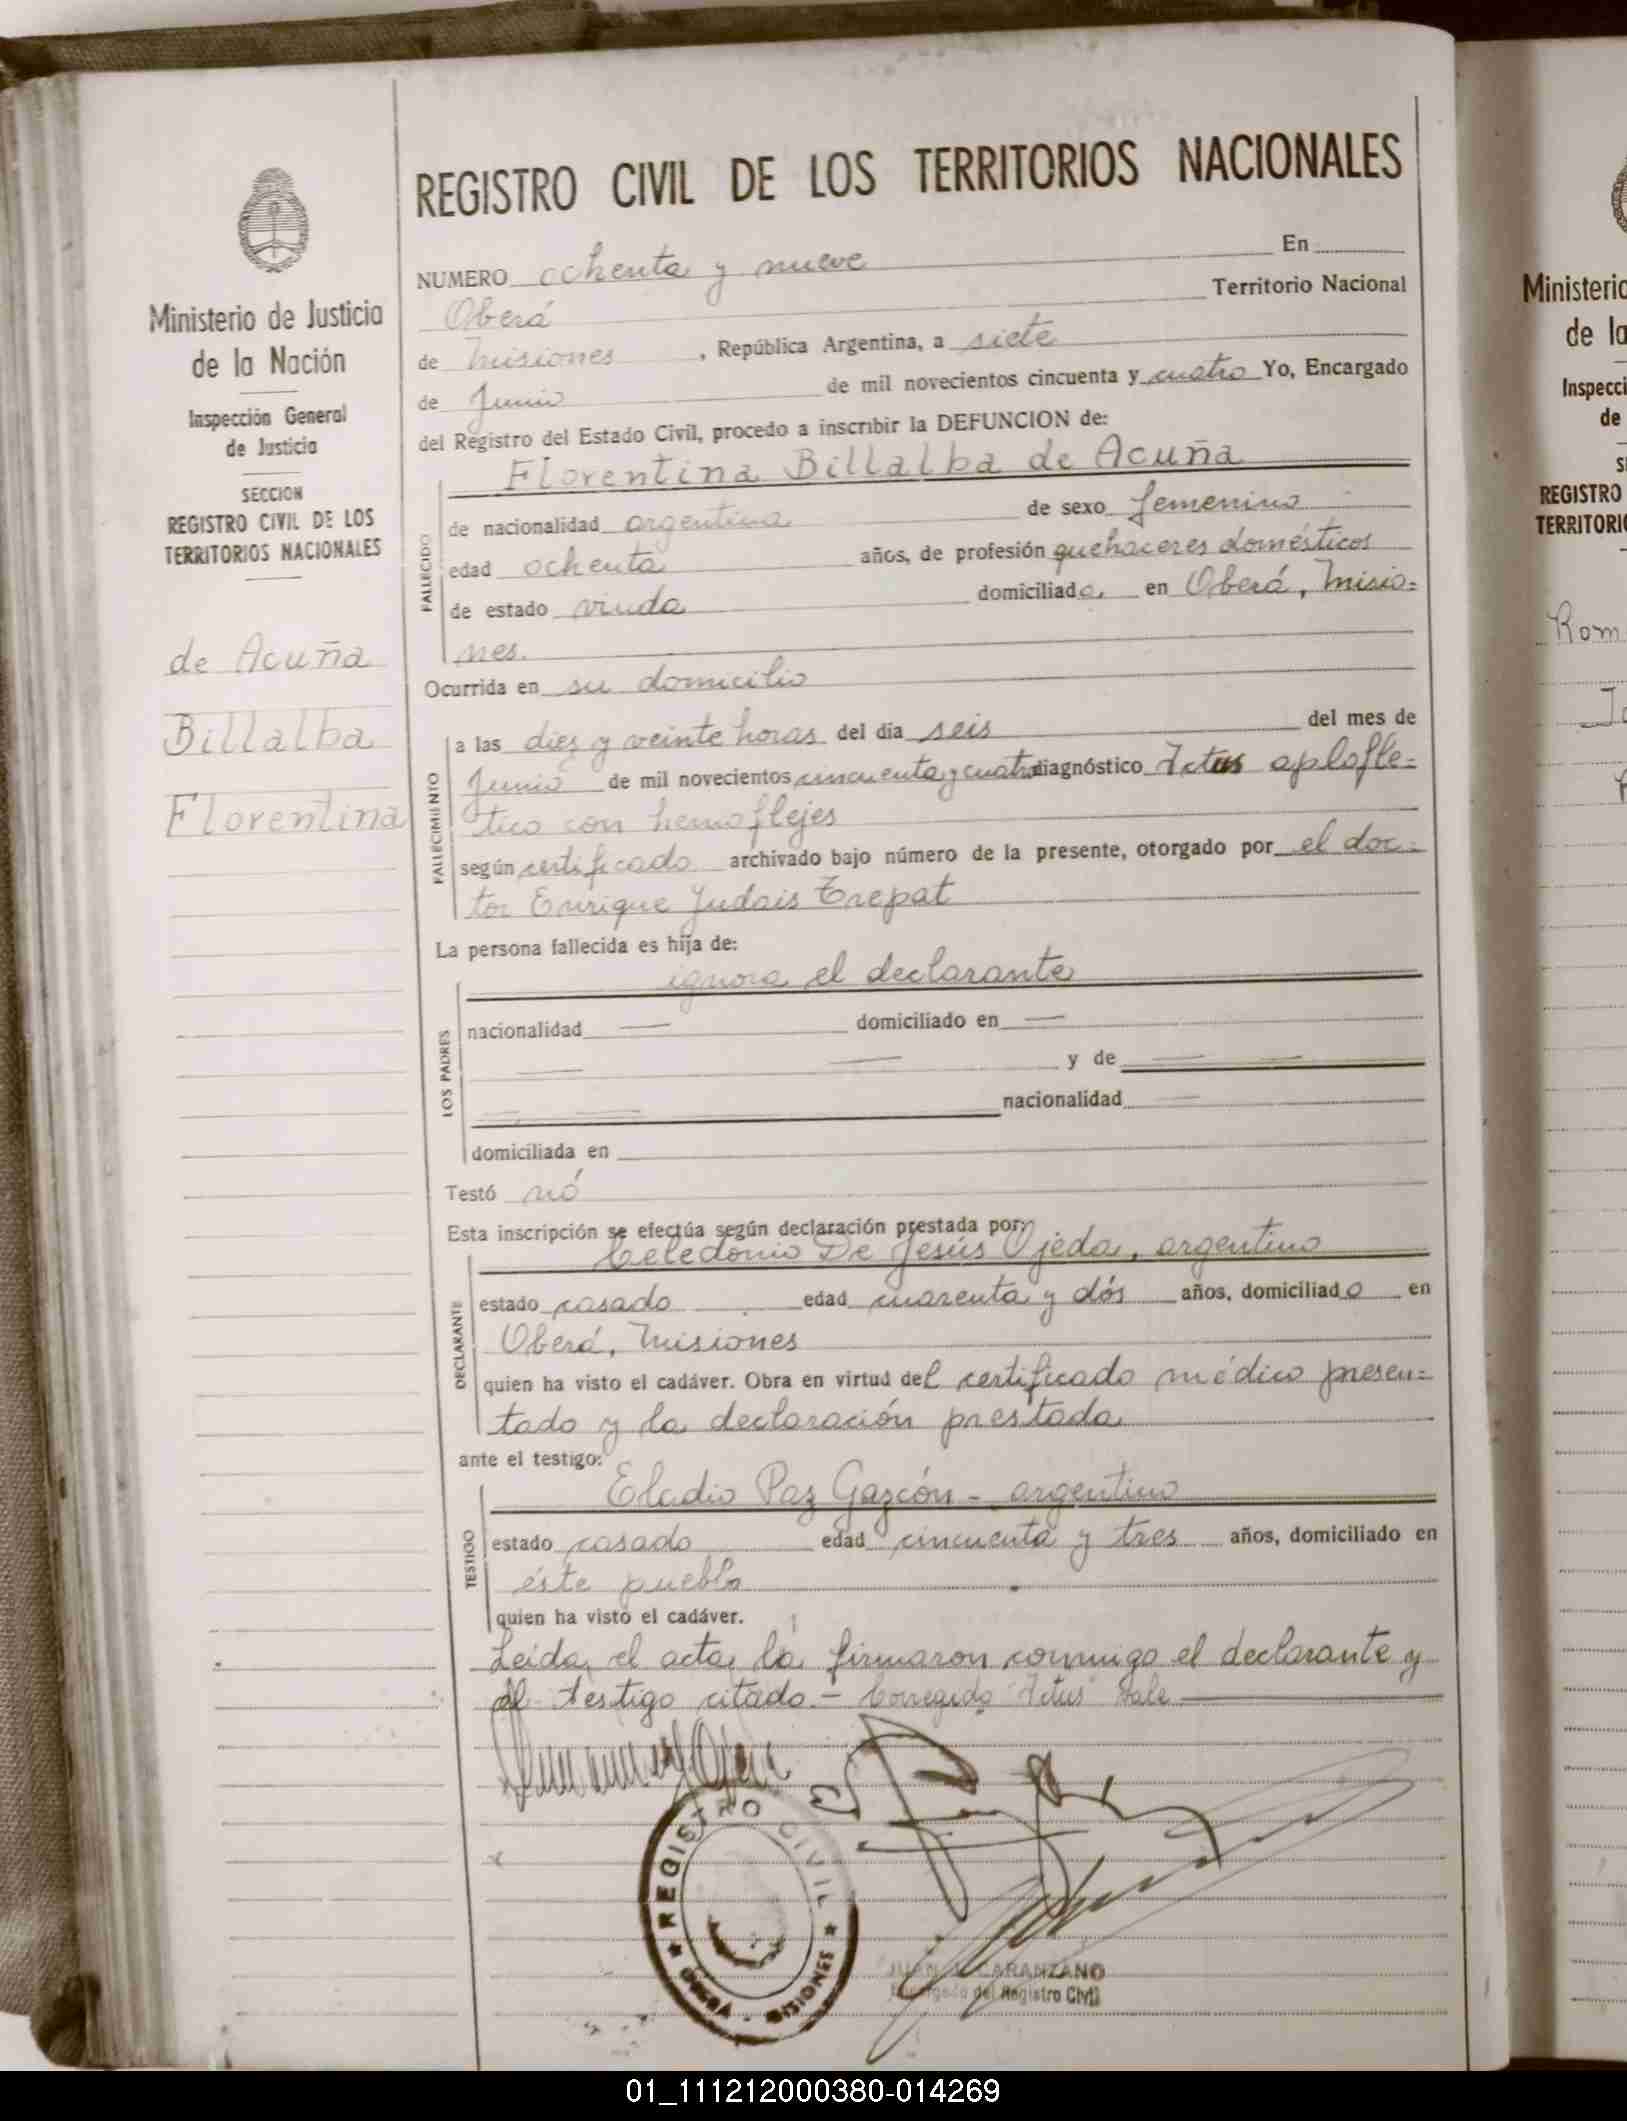 REGISTRO CIVIL DE LOS TERRITORIOS NACIONALES
Ministerio de Justicia
de la Nación
Inspección General
de Justicia
SECCION
REGISTRO CIVIL DE LOS
TERRITORIOS NACIONALES
de Acuña
Billalba
Florentina
NUMERO ochenta y nueve En
Oberá Territorio Nacional
de Misiones , República Argentina, a siete
de Junio de mil novecientos cincuenta y cuatro Yo, Encargado
del Registro del Estado Civil, procedo a inscribir la DEFUNCION de:
Florentina Billalba de Acuña
FALLECIDO
de nacionalidad argentina de sexo femenino
edad ochenta años, de profesión quehaceres domésticos
de estado viuda domiciliada en Oberá, Misio=
nes.
Ocurrida en su domicilio
FALLECIMIENTO
a las diez y veinte horas del día seis del mes de
Junio de mil novecientos cincuenta y cuatro diagnóstico Ictus aplofle=
tico con hemoflejes
según certificado archivado bajo número de la presente, otorgado por el doc=
tor Enrique Judais Trepat
La persona fallecida es hija de:
ignora el declarante
LOS PADRES
nacionalidad — domiciliado en —
— — y de — —
— — nacionalidad —
domiciliada en
Testó nó
Esta inscripción se efectúa según declaración prestada por:
Celedonio De Jesús Ojeda, argentino
DECLARANTE
estado casado edad cuarenta y dós años, domiciliado en
Oberá, Misiones
quien ha visto el cadáver. Obra en virtud del certificado médico presen=
tado y la declaración prestada
ante el testigo:
Eladio Paz Gazcón - argentino
TESTIGO
estado casado edad cincuenta y tres años, domiciliado en
éste pueblo
quien ha visto el cadáver.
Leida el acta la firmaron conmigo el declarante y
el testigo citado - Corregido "Ictus" Vale
REGISTRO CIVIL
OBERA - MISIONES
JUAN CARANZANO
Encargado del Registro Civil
Ministerio
de la
Inspecci
de
S
REGISTRO
TERRITORI
Rom
01_111212000380-014269